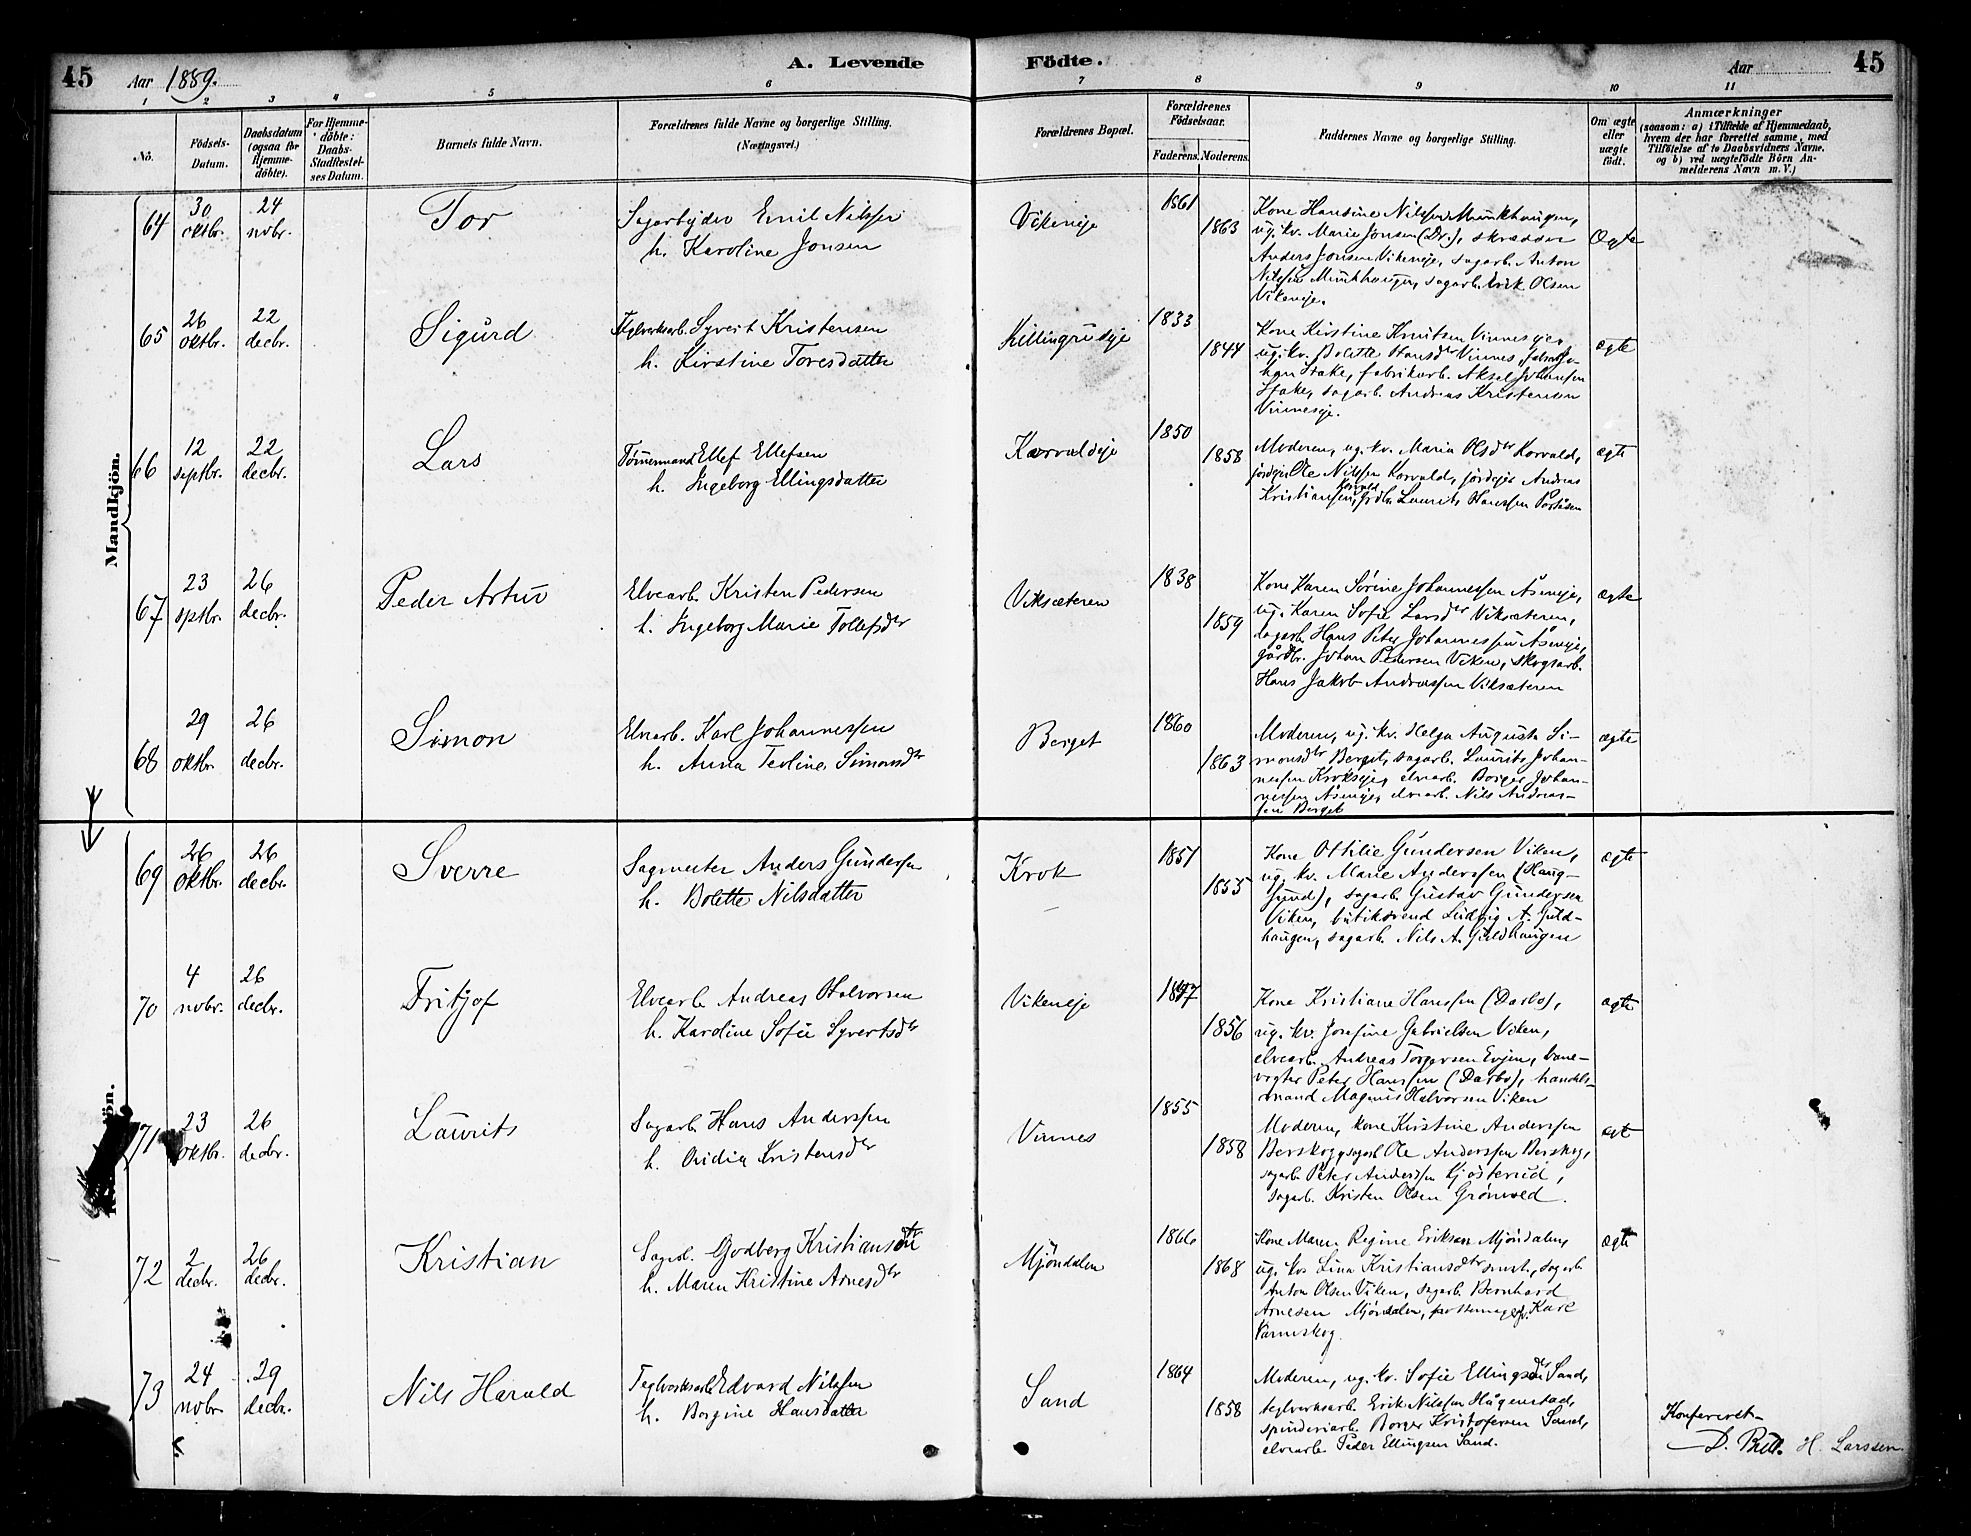 45 Aar 1889. A. Levende Födte. Aar 45
1 2 3 4 5 6 7 8 9 10 11
No.
Födsels-Datum.
Daabsdatum (ogsaa for Hjemme-döbte).
For Hjemme-döbte: Daabs-Stadfestel-ses Datum.
Barnets fulde Navn.
Forældrenes fulde Navne og borgerlige Stilling.
(Næringsvei.)
Forældrenes Bopæl.
Forældrenes Födselsaar.
Faderens. Moderens.
Faddernes Navne og borgerlige Stilling.
Om ægte eller uægte födt.
Anmærkninger
(saasom: a) i Tilfælde af Hjemmedaab,
hvem der har forrettet samme, med
Tilföielse af to Daabsvidners Navne.
og b) ved uægtefödte Börn An-
melderens Navn m. V.)
Mandkjön.
64 30 oktbr. 24 novbr. Tor
Sagarbejder Emil Nilssen
h. Karoline Jonsen
Vikeneje 1861 1863
Kone Hansine Nilssen Munkhaugen,
ug. kv. Marie Jonsen (Dr.), skrædder
Anders Jonsen Vikeneje, sagarb. Anton
Nilssen Munkhaugen, sagarb. Erik Olsen
Vikeneje.
Ægte
65 26 oktbr. 22 decbr. Sigurd
Teglverksarb. Syvert Kristensen
h. Kirstine Toresdatter
Killingrudeje 1833 1844
Kone Kirstine Knutsen Vinneseje,
ug. kv. Bolette Hansdtr Vinnes, Jo-
han Stake, fabrikarb. Aksel Johansen
Stake, sagarb. Andreas Kristensen
Vinneseje.
ægte
66 12 septbr. 22 decbr. Lars
Tömmermand Ellef Ellefsen
h. Ingeborg Ellingsdatter
Korvaldeje 1850 1858
Moderen, ug. kv. Maria Olsdtr Korvald,
jordejer Ole Nilssen Korvald, jordejer Andreas
Kristiansen Korvald, Laurits Hanssen
ægte
67 23 sptbr. 26 decbr. Peder Artur
Elvearb. Kristen Pedersen
h. Ingeborg Marie Tollefsdtr
Viksæteren 1838 1859
Kone Karen Sörine Johannessen Åseneje,
ug. Karen Sofie Larsdtr Viksæteren,
sagarb. Hans Peter Johannessen Åseneje,
gårdbr. Johan Pedersen Viken, skogsarb.
Hans Jakob Andreassen Viksæteren
ægte
68 29 oktbr. 26 decbr. Simon
Elvearb. Karl Johannessen
h. Anna Teoline Simonsdtr
Berget 1860 1863
Moderen, ug. kv. Helga Augusta Si-
monsdtr Berget, sagarb. Laurits Johan-
nessen Krokseje, elvearb. Borger Johan-
nessen Åseneje, elvearb. Nils Andreas-
sen Berget
ægte
69 26 oktbr. 26 decbr. Sverre
Sagmester Anders Gundersen
h. Bolette Nilsdatter
Krok 1851 1855
Kone Othilie Gundersen Viken,
ug. kv. Marie Anderssen (Haug-
sund), sagarb. Gustav Gundersen
Viken, butiksvend Ludvig A. Guld-
haugen, sagarb. Nils A. Guldhaugen
ægte
70 4 novbr. 26 decbr. Fritjof
Elvearb. Andreas Halvorsen
h. Karoline Sofie Syvertsdtr
Vikeneje 1847 1856
Kone Kristiane Hanssen (Darbo),
ug. kv. Josefine Gabrielsen Viken,
elvearb. Andreas Torgersen Evjen, bane-
vogter Peter Hanssen (Darbo), handels-
mand Magnus Halvorsen Viken
ægte
71 23 oktbr. 26 decbr. Laurits
Sagarb. Hans Anderssen
h. Kristensdtr
Vinnes 1855 1858
Moderen, kone Kirstine Anderssen
Berskog, sagarb. Ole Anderssen Berskog,
sagarb. Peter Anderssen Gjösterud,
sagarb. Kristen Olsen Grönvold.
ægt
72 2 decbr. 26 decbr. Kristian
Sagarb. Godberg Kristiansen
h. Maren Kristine Arnesdtr
Mjöndalen 1866 1868
Kone Maren Regine Eriksen Mjöndalen,
ug. kv. Lina Kristiansdtr smst., sagarb.
Anton Olsen Viken, sagarb. Bernhard
Arnesen Mjöndalen, Karl
Varmskog.
ægte
73 24 novbr. 29 decbr. Nils Harald
Teglverksarb. Edvard Nilssen
h. Borgine Hansdatter
Sand 1864 1858
Moderen, ug. kv. Sofie Ellingsdtr Sand,
teglverksarb. Erik Nilssen Hågenstad,
spinderiarb. Borger Kristofersen Sand,
elvearb. Peder Ellingsen Sand.
Konfereret
D. Bull. H. Larssen